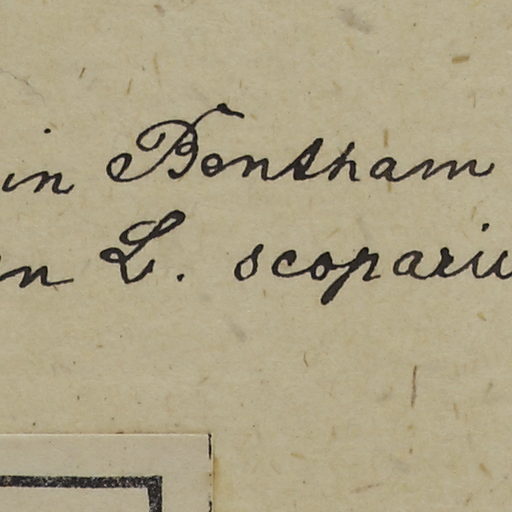 in Bentham
n L. scopariu